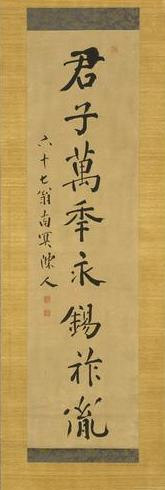 君子萬年永錫祚胤
六十七翁南冥陳人